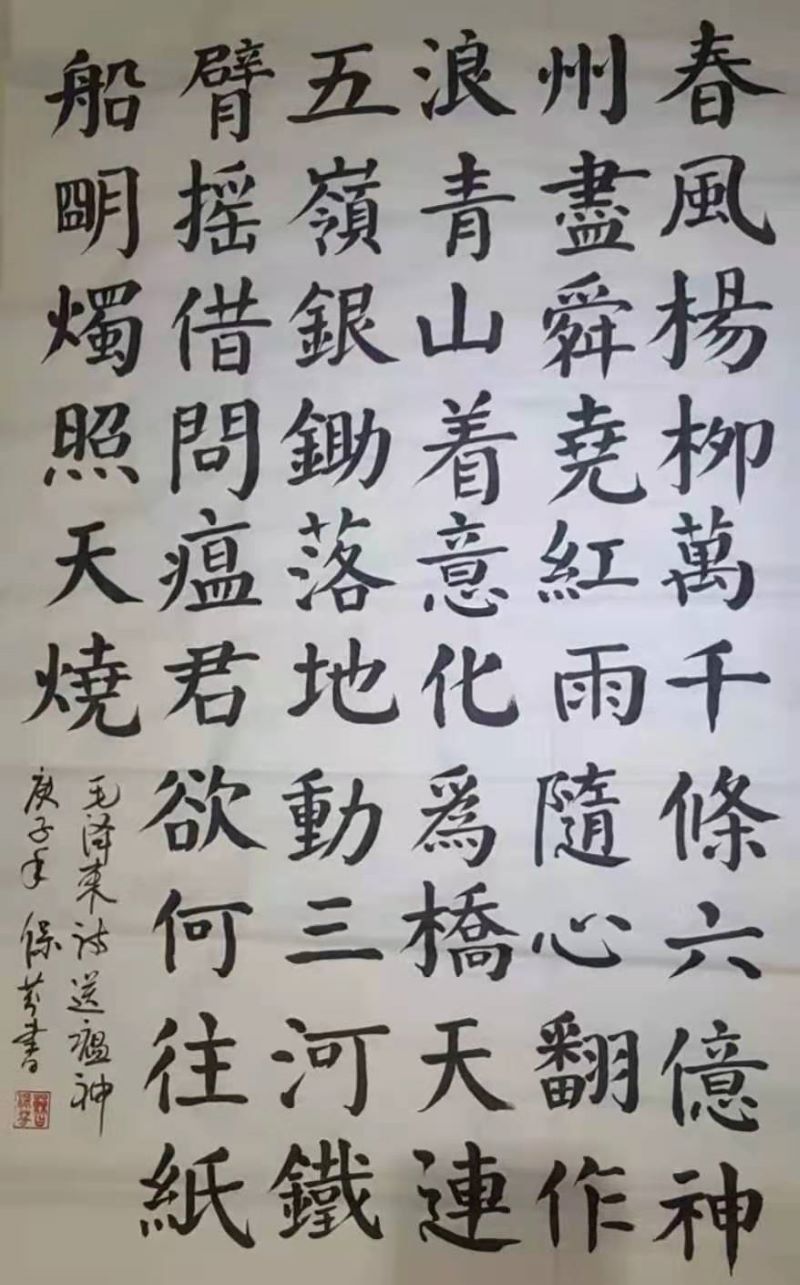 春風楊柳萬千條六億神
州盡舜堯紅雨隨心翻作
浪青山着意化為橋天連
五嶺銀鋤落地動三河鐵
臂摇借問瘟君欲何往紙
船明燭照天燒
毛泽东诗送瘟神
庚子年 保芳書